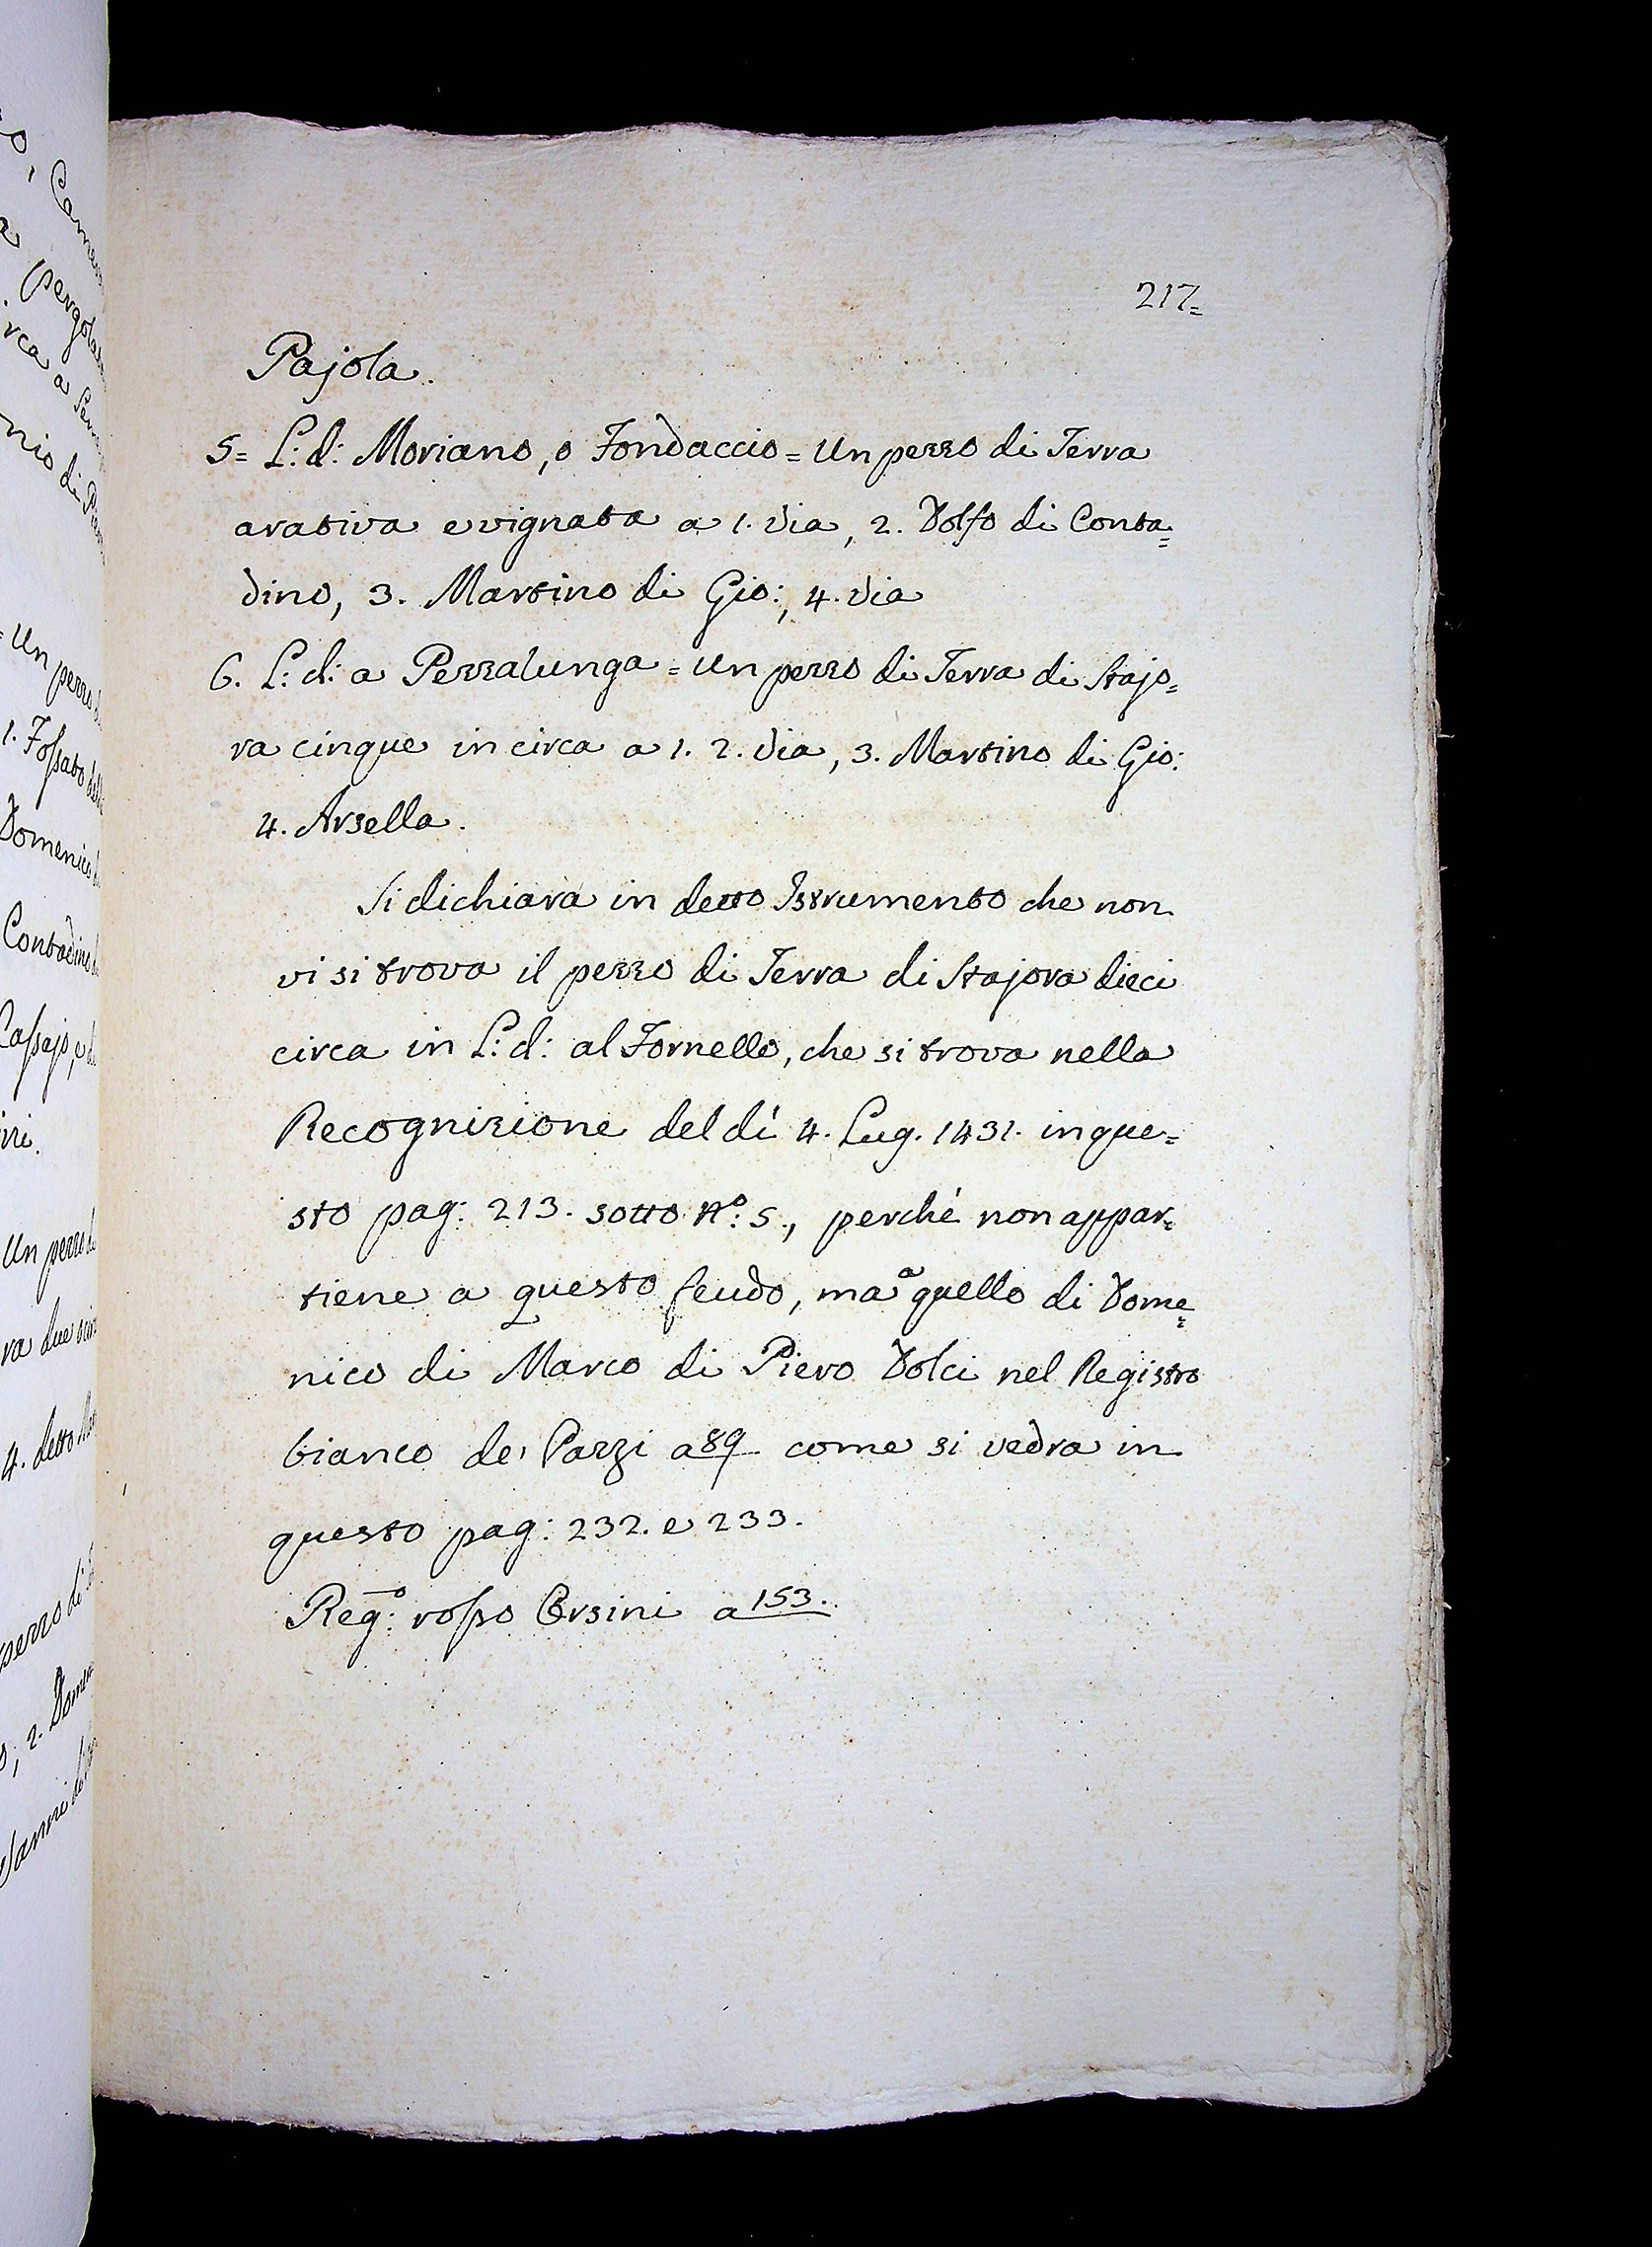 217=
Pajola.
5= L: d: Moriano, o Fondaccio = Un pezzo di Terra
arativa e vignata a 1. via, 2. Dolfo di Conta=
dino, 3. Martino di Gio:, 4. via
6. L: d: a Pezzalunga = Un pezzo di Terra di Stajo=
ra cinque in circa a 1. 2. via, 3. Martino di Gio:
4. Arzella.
Si dichiara in detto Istrumento che non
vi si trova il pezzo di Terra di Stajora dieci
circa in L: d: al Fornello, che si trova nella
Recognizione del dì 4. Lug. 1431. in que=
sto pag: 213. sotto N.º: 5., perchè non appar=
tiene a questo feudo, ma a quello di Dome=
nico di Marco di Piero Dolci nel Registro
bianco de' Pazzi a 89 come si vedra in
questo pag: 232. e 233.
Reg:º rosso Orsini a 153.